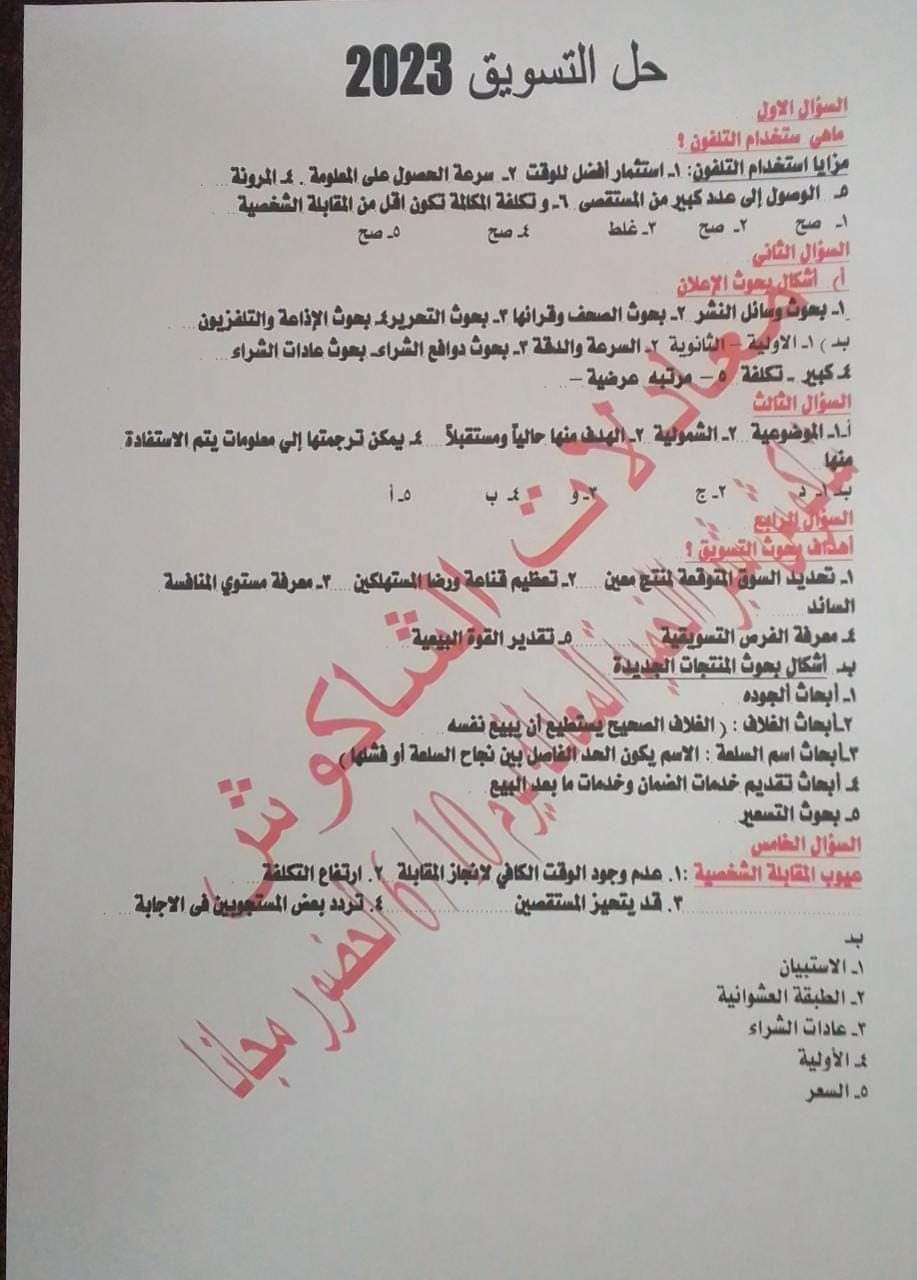 حل التسويق 2023
السؤال الاول
ماهي ستخدام التلفون ؟
مزايا استخدام التلفون: ١ـ استثمار أفضل للوقت ٢ـ سرعة الحصول على المعلومة . ٤ـ المرونة
٥ـ الوصول إلى عدد كبير من المستقصى ٦ـ و تكلفة المكالمة تكون اقل من المقابلة الشخصية
١ـ صح ٢ـ صح ٣ـ غلط ٤ـ صح ٥ـ صح
السؤال الثاني
أ) أشكال بحوث الإعلان
١ـ بحوث وسائل النشر ٢ـ بحوث الصحف وقرائها ٣ـ بحوث التحرير٤ـ بحوث الإذاعة والتلفزيون
بـ ) ١ـ الاولية – الثانوية ٢ـ السرعة والدقة ٣ـ بحوث دوافع الشراء ـ بحوث عادات الشراء
٤ـ كبير ـ تكلفة ٥ – مرتبه عرضية –
السؤال الثالث
أـ١ـ الموضوعية ٢ـ الشمولية ٢ـ الهدف منها حالياً ومستقبلاً ٤ـ يمكن ترجمتها إلي معلومات يتم الاستفادة
منها
بـ ١ـ د ٢ـ ج ٣ـ و ٤ـ ب ٥ـ أ
السؤال الرابع
أهداف بحوث التسويق ؟
١ـ تحديد السوق المتوقعة لمنتج معين ٢ـ تعظيم قناعة ورضا المستهلكين ٣ـ معرفة مستوي المنافسة
السائد
٤ـ معرفة الفرص التسويقية ٥ـ تقدير القوة البيعية
بـ أشكال بحوث المنتجات الجديدة
١ـ أبحاث ألجوده
٢ـأبحاث الغلاف : ( الغلاف الصحيح يستطيع أن يبيع نفسه
٣ـأبحاث اسم السلعة : الاسم يكون الحد الفاصل بين نجاح السلعة أو فشلها )
٤ـ أبحاث تقديم خدمات الضمان وخدمات ما بعد البيع
٥ـ بحوث التسعير
السؤال الخامس
عيوب المقابلة الشخصية :١. عدم وجود الوقت الكافي لانجاز المقابلة ٢. ارتفاع التكلفة
٣. قد يتحيز المستقصين ٤. تردد بعض المستجوبين فى الاجابة
بـ
١ـ الاستبيان
٢ـ الطبقة العشوانية
٣ـ عادات الشراء
٤ـ الأولية
٥ـ السعر
معادلات الشاكوش
المعادلة يوم 6/10 الحضور مجانا